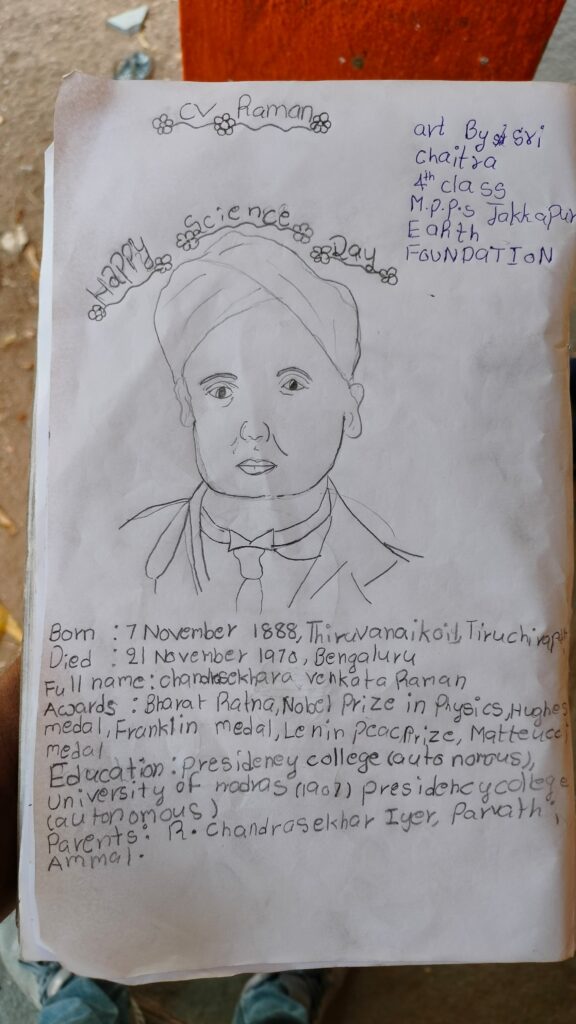 CV Raman
art By Sri
chaitra
4th class
M.p.p.s Jakkapur
Earth
FOUNDATION
Happy Science Day
Born : 7 November 1888, Thiruvanaikoil, Tiruchirap
Died : 21 November 1970, Bengaluru
Full name : chandrasekhara venkata Raman
Awards : Bharat Ratna, Nobel Prize in Physics, Hughes
medal, Franklin medal, Lenin Peac Prize, Matteucci
medal
Education : presideney college (auto norous),
University of madras (1907) presidency college
(autonomous)
Parents : R. Chandrasekhar Iyer, Parvathi
Ammal.